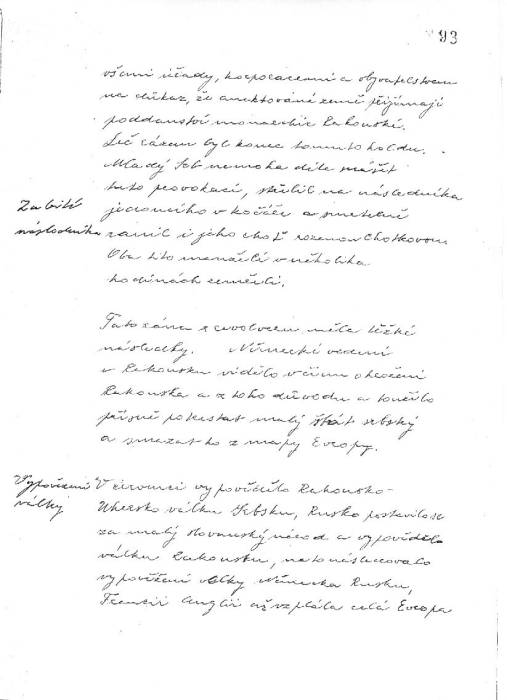 93
všemi úřady, korporacemi a obyvatelstvem
na důkaz, že anektované země přijímají
poddanství monarchie Rakouské.
Leč rázem byl konec tomuto holdu.
Mladý Srb nemoha déle snášet
tuto provokaci, střelil na následníka
Zabití
následníka
jedoucího v kočáře a smrtelně
ranil i jeho choť rozenou Chotkovou
Oba tito manželé v několika
hodinách zemřeli.
Tato rána z revolveru měla těžké
následky. Německé vedení
v Rakousku vidělo v činu ohrožení
Rakouska a z toho důvodu
přísně potrestat malý stát srbský
a smazat ho z mapy Evropy.
Vypovězení
války
V červenci vypovědělo Rakousko-
Uhersko válku Srbsku, Rusko postavilo se
za malý slovanský národ a vypovědělo
válku Rakousku, na to následovalo
vypovězení války Německa Rusku,
Francii Anglii až vzplála celá Evropa